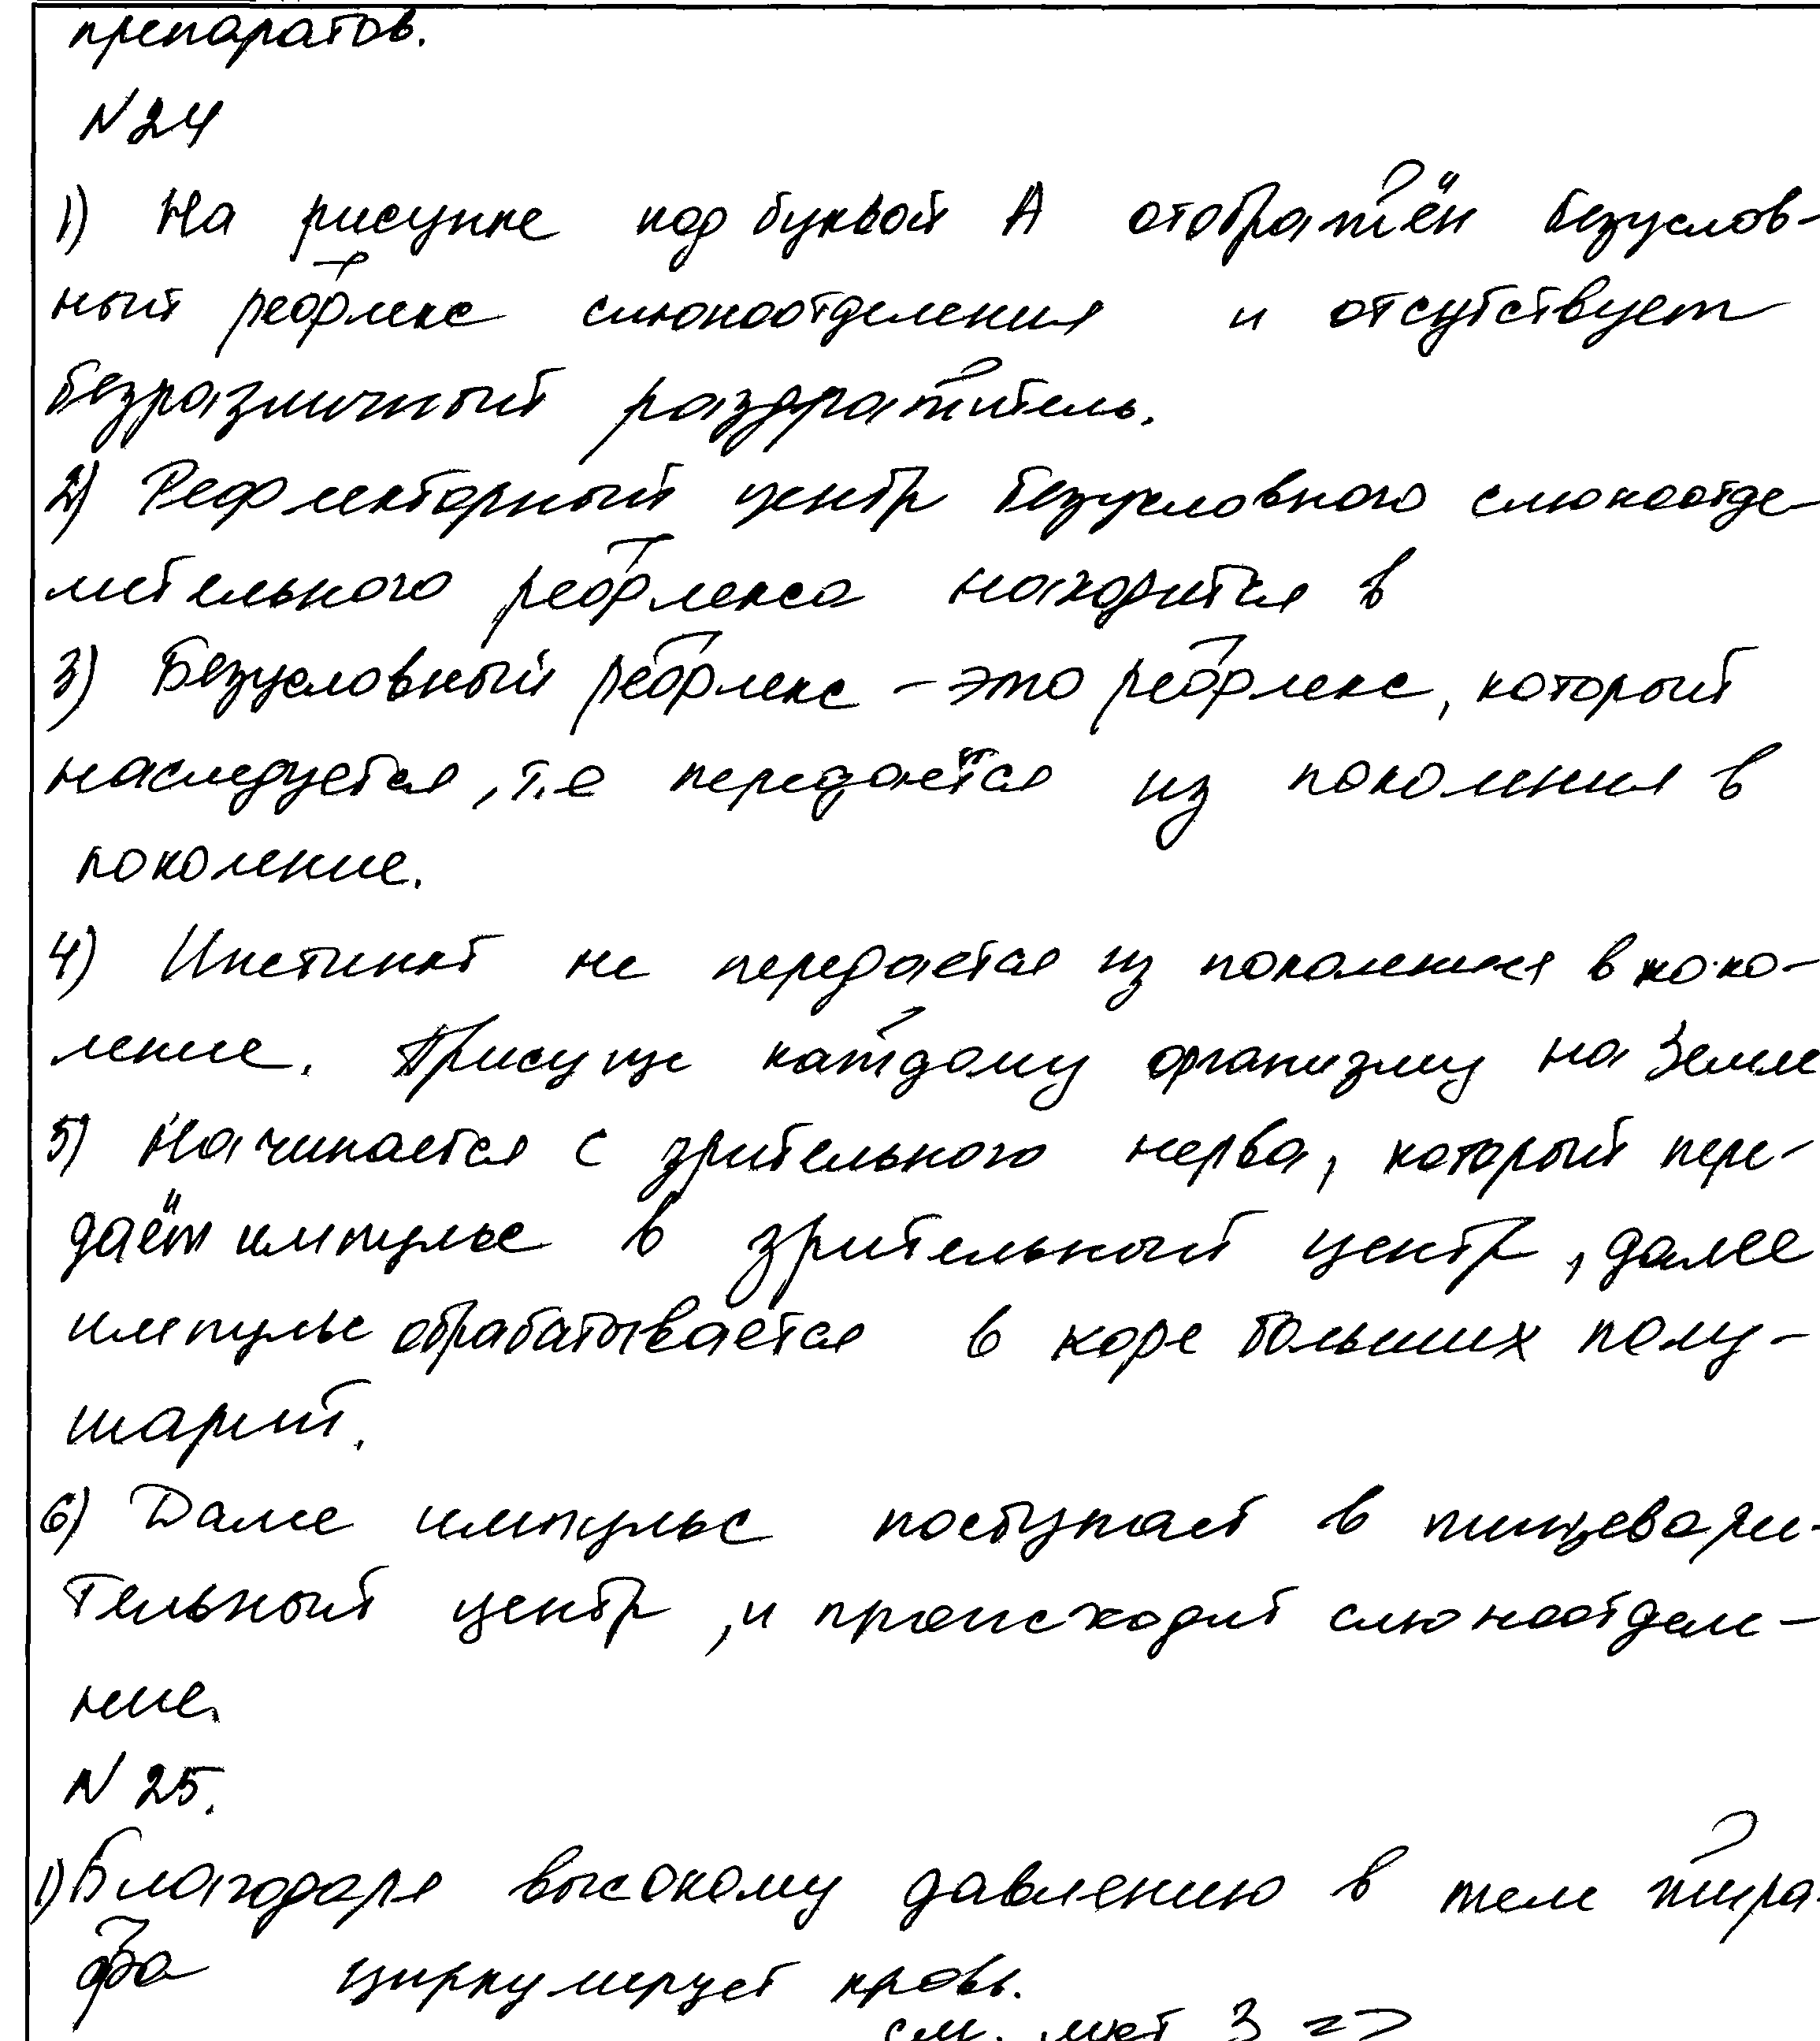 препаратов.
N24
1) На рисунке под буквой А отображён безуслов-
ный рефлекс слюноотделения и отсутствует
безразличный раздражитель.
2) Рефлекторный центр безусловного слюноотде-
лительного рефлекса находится в
3) Безусловный рефлекс - это рефлекс, который
наследуется, т.е передаётся из поколения в
поколение.
4) Инстинкт не передается из поколения в поко-
ление. Присущ каждому организму на Земле
5) Начинается с зрительного нерва, который пере-
даёт импульс в зрительный центр, далее
импульс обрабатывается в коре больших полу-
шарий.
6) Далее импульс поступает в пищевари-
тельный центр, и происходит слюноотделе-
ние.
N 25.
1) Благодаря высокому давлению в теле жира-
фа циркулирует кровь.
см. лист 3 =>